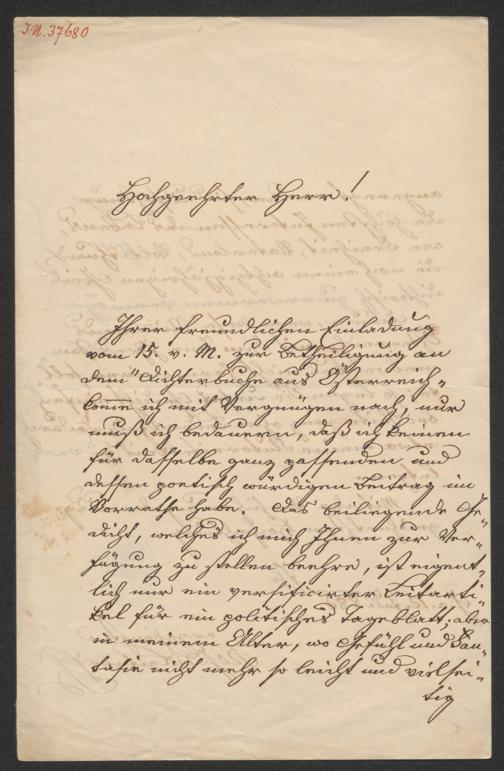 I.N. 37680
Hochgeehrter Herr!
Ihrer freundlichen Einladung
vom 15. v. M. zur Betheiligung an
dem "Dichterbuche aus Österreich"
kom̅e ich mit Vergnügen nach, nur
muß ich bedauern, daß ich keinen
für dasselbe ganz passenden und
dessen poetisch würdigen Beitrag im
Vorrathe habe. Das beiliegende Ge-
dicht, welches ich mich Ihnen zur Ver-
fügung zu stellen beehre, ist eigent-
lich nur ein versificirter Leitarti-
kel für ein politisches Tageblatt; aber
in meinem Alter, wo Gefühl und Fan-
tasie nicht mehr so leicht und vielsei-
tig